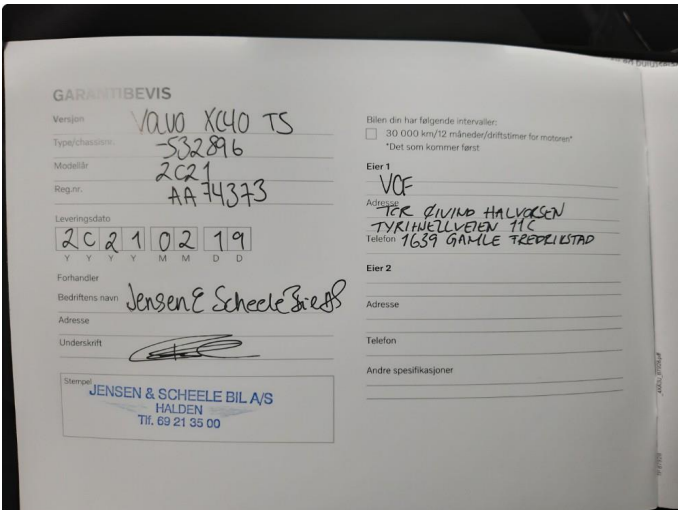 GARANTIBEVIS
Versjon VOLVO XC40 T5
Type/chassisnr. -532896
Modellår 2021
Reg.nr. AA 74373
Leveringsdato
2021 02 19
Y Y Y Y M M D D
Forhandler
Bedriftens navn Jensen & Scheele Bil AS
Adresse
Underskrift
Stempel
JENSEN & SCHEELE BIL A/S
HALDEN
Tlf. 69 21 35 00
Bilen din har følgende intervaller:
30 000 km/12 måneder/driftstimer for motoren*
*Det som kommer først
Eier 1
VCF
Adresse TCR ØIVIND HALVORSEN
TYRIHJELLVEIEN 11C
Telefon 1639 GAMLE FREDRIKSTAD
Eier 2
Adresse
Telefon
Andre spesifikasjoner